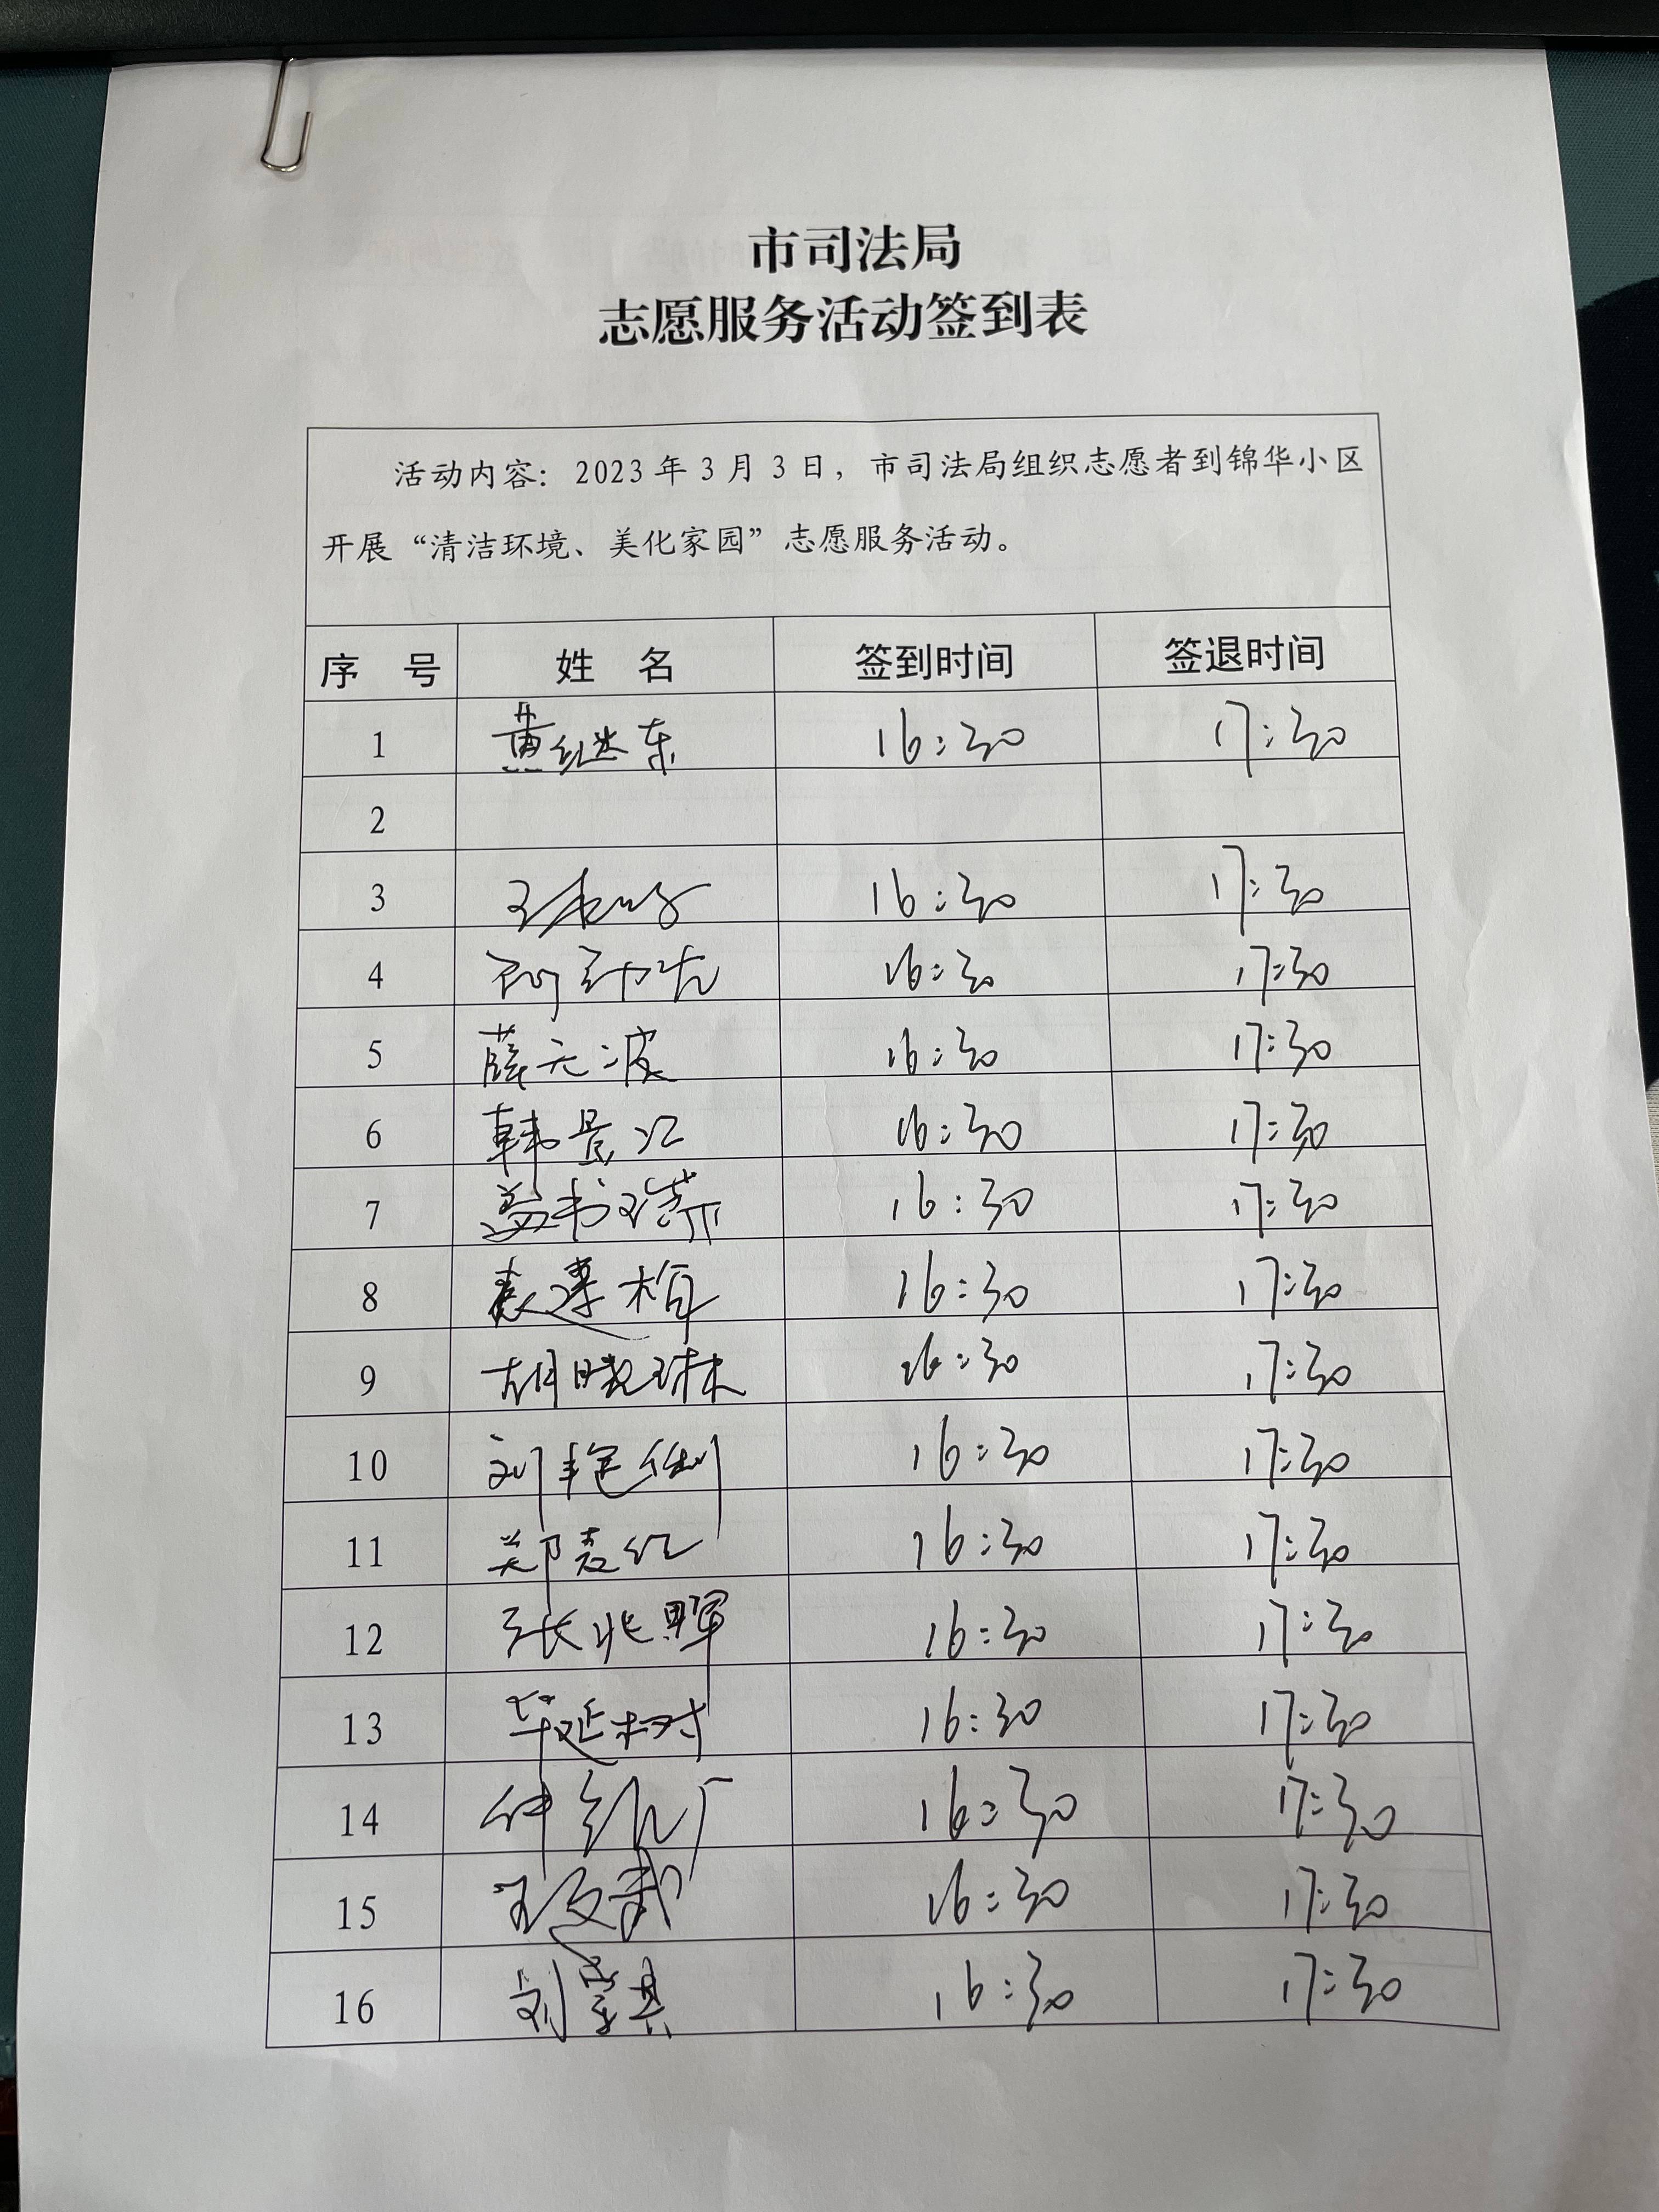 市司法局
志愿服务活动签到表
活动内容：2023年3月3日，市司法局组织志愿者到锦华小区
开展“清洁环境、美化家园”志愿服务活动。
序 号 姓 名 签到时间 签退时间
1 黄继东 16:30 17:30
2
3 16:30 17:30
4 16:30 17:30
5 薛元波 16:30 17:30
6 韩景江 16:30 17:30
7 16:30 17:30
8 袁遵柏 16:30 17:30
9 胡晓琳 16:30 17:30
10 刘艳俐 16:30 17:30
11 郑嘉红 16:30 17:30
12 张兆晖 16:30 17:30
13 毕延树 16:30 17:30
14 16:30 17:30
15 王文武 16:30 17:30
16 16:30 17:30